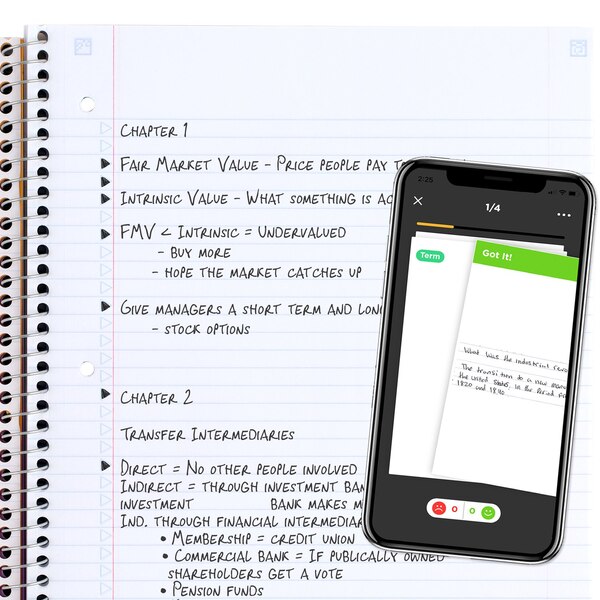 CHAPTER 1
FAIR MARKET VALUE - PRICE PEOPLE PAY
INTRINSIC VALUE - WHAT SOMETHING IS
FMV < INTRINSIC = UNDERVALUED
- BUY MORE
- HOPE THE MARKET CATCHES UP
GIVE MANAGERS A SHORT TERM AND
- STOCK OPTIONS
CHAPTER 2
TRANSFER INTERMEDIARIES
DIRECT = NO OTHER PEOPLE INVOLVED
INDIRECT = THROUGH INVESTMENT
INVESTMENT BANK MAKES
IND. THROUGH FINANCIAL
• MEMBERSHIP = CREDIT UNION
• COMMERCIAL BANK = IF PUBLICALLY OWNED
SHAREHOLDERS GET A VOTE
• PENSION FUNDS
2:25
1/4
Term
Got It!
What was the industrial
The transition to a new
the united states, in the period
1820 and 1840
0 0